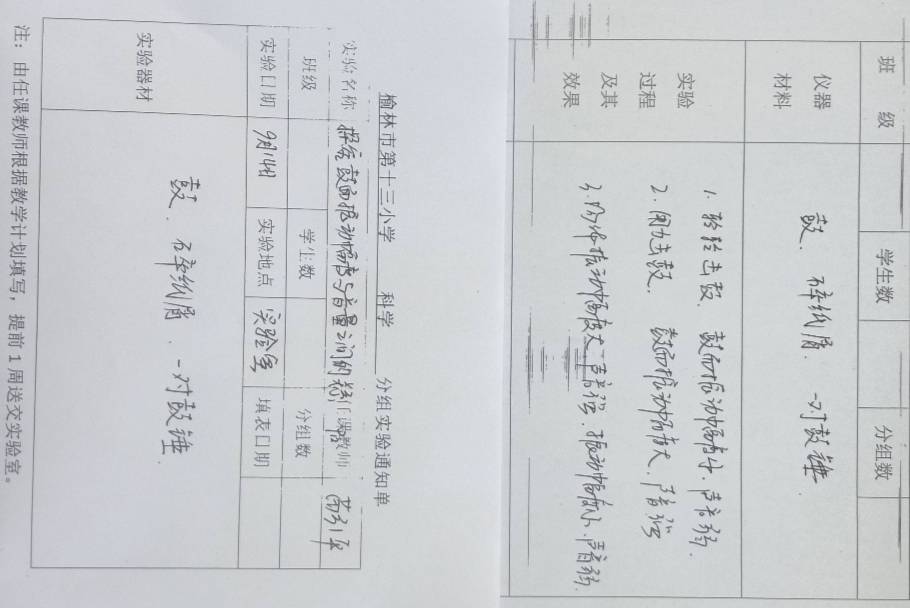 班 级 学生数 分组数
仪器 材料 鼓、碎纸屑、一对鼓锤.
实验 过程 及其 效果
1. 轻轻击鼓、鼓面振动幅度小、声音弱.
2. 用力击鼓、鼓面振动幅度大、声音强
3. 物体振动幅度大、声音强、振动幅度小、声音弱.
榆林市第十三小学 科学 分组实验通知单
实验名称 探究鼓面振动幅度与音量之间的 任课教师
班级 学生数 分组数
实验日期 9月14日 实验地点 实验室 填表日期
实验器材 鼓、碎纸屑、一对鼓锤.
注：由任课教师根据教学计划填写，提前 1 周送交实验室。